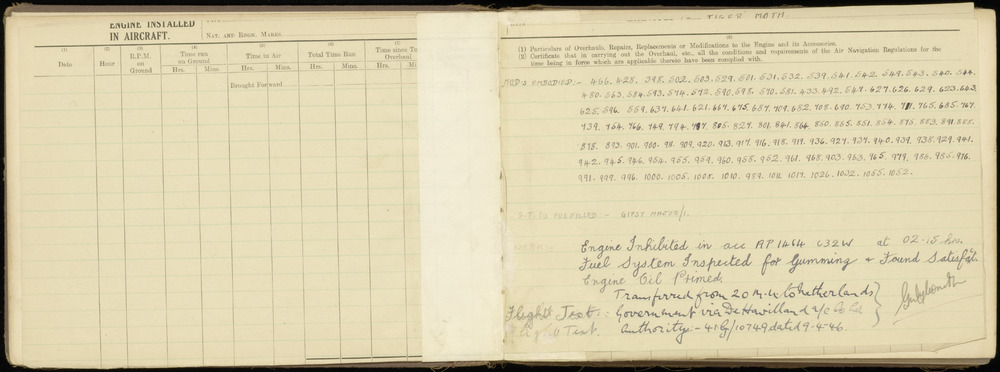 ENGINE INSTALLED
IN AIRCRAFT.
NAT. AND REGN. MARKS
(1) (2) (3) (4) (5) (6) (7)
Date Hour R.P.M. on Ground Time run on Ground Time in Air Total Time Run Time since Overhaul
Hrs. Mins. Hrs. Mins. Hrs. Mins. Hrs. Mins.
Brought Forward
TIGER MOTH.
(8)
(1) Particulars of Overhauls, Repairs, Replacements or Modifications to the Engine and its Accessories.
(2) Certificate that in carrying out the Overhaul, etc., all the conditions and requirements of the Air Navigation Regulations for the
time being in force which are applicable thereto have been complied with.
MOD'S EMBODIED:- 466. 428. 398. 502. 503. 529. 501. 531. 532. 539. 541. 542. 549. 543. 540. 544.
480. 563. 584. 593. 574. 572. 590. 598. 570. 581. 433. 492. 547. 627. 626. 629. 623. 643.
625. 596. 559. 637. 661. 621. 667. 675. 687. 709. 682. 708. 690. 753. 774. 711. 765. 685. 767.
739. 754. 766. 749. 794. 797. 805. 827. 801. 841. 864. 850. 865. 851. 854. 875. 883. 891. 885.
878. 893. 901. 900. 98. 909. 920. 913. 917. 916. 918. 919. 936. 927. 937. 940. 939. 938. 929. 941.
942. 945. 946. 954. 955. 959. 960. 958. 952. 961. 968. 903. 963. 965. 979. 986. 985. 976.
991. 999. 996. 1000. 1005. 1008. 1010. 989. 1012. 1017. 1026. 1032. 1055. 1052.
S.T.I's FULFILLED:- GIPSY MAJOR/1.
Engine Inhibited in acc AP 1464 C32W at 02.15 hrs.
Fuel System Inspected for Gumming & Found Satisfact.
Engine Oil Primed.
Transferred from 20 M.U. to Netherlands
Flight Test: Government via De Havilland a/c Co Ltd
Flight Test. Authority - 41G/10749 dated 9-4-46.